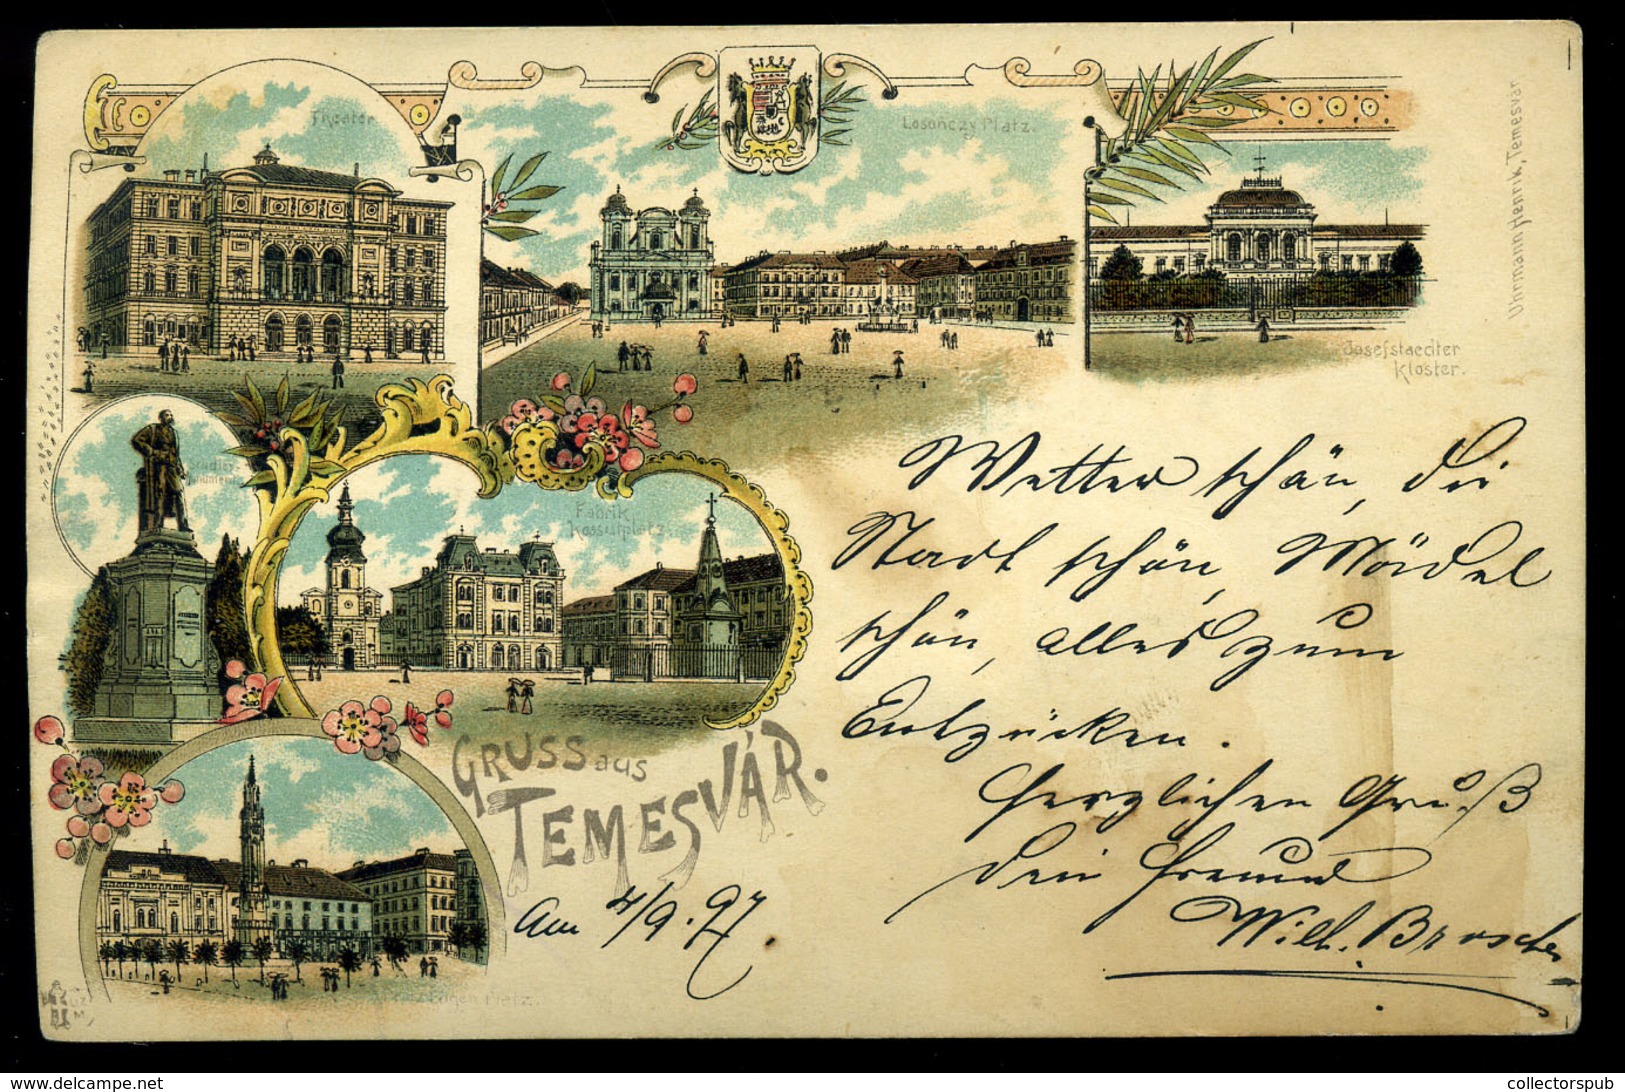 Theater
Losonczy Platz.
Uhrmann Henrik, Temesvár
Josefstaedter
Kloster.
Fabrik,
Kossuthplatz.
GRUSS aus
TEMESVÁR.
Eugen Platz.
Wetter schön, die
Stadt schön, Mädel
schön, alles zum
Entzücken.
Herzlichen Gruß
dein Freund
Wilh.
Am 4/9. 97
collectorspub